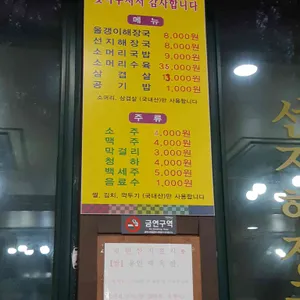 찾아주셔서 감사합니다
메뉴
올갱이해장국 8,000원
선지해장국 8,000원
소머리국밥 9,000원
소머리수육 35,000원
삼겹살 13,000원
공기밥 1,000원
소머리, 삼겹살 (국내산)만 사용합니다
주류
소주 4,000원
맥주 4,000원
막걸리 3,000원
청하 4,000원
백세주 5,000원
음료수 1,000원
쌀, 김치, 깍두기 (국내산)만 사용합니다
금연구역
선지해장국